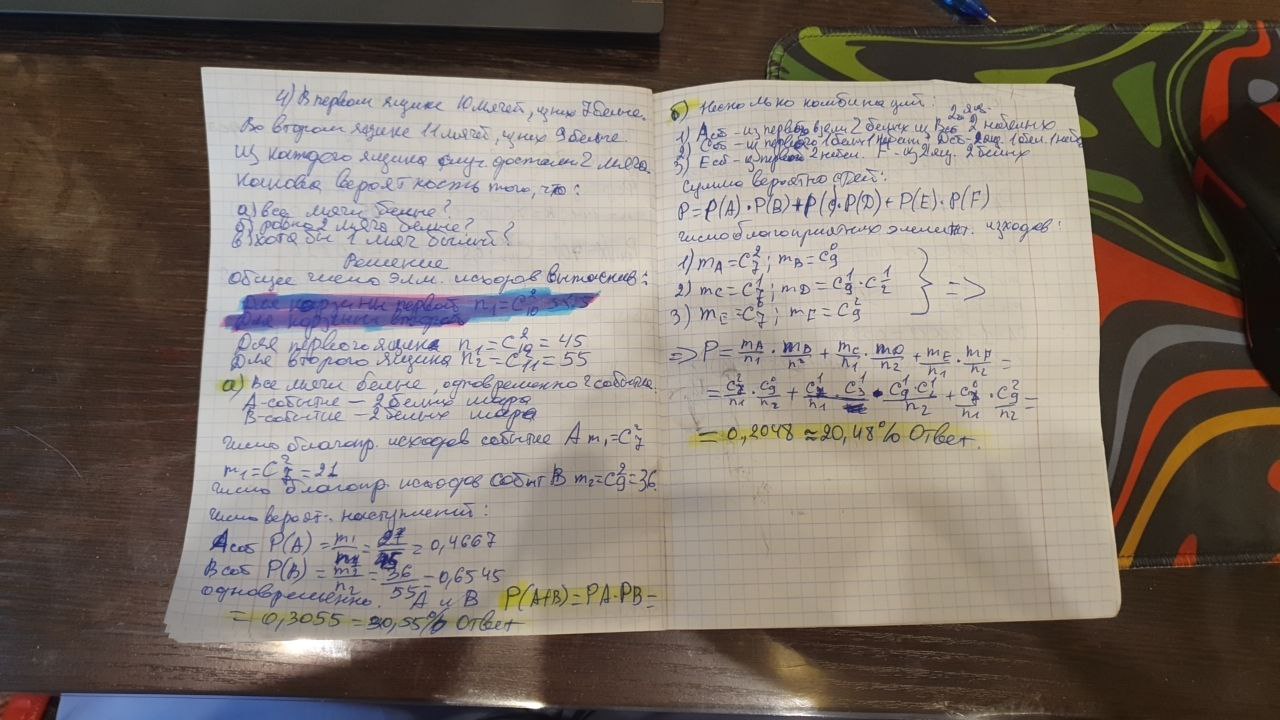 4) В первом ящике 10 мячей, из них 7 белые.
Во втором ящике 11 мячей, из них 9 белые.
Из каждого ящика случ. достали 2 мяча.
Какова вероятность того, что:
а) все мячи белые?
б) ровно 2 мяча белые?
в) хотя бы 1 мяч
Решение
Общее число элем. исходов вытаскив:
Для корзины первой n₁=C²₁₀
Для корзины второй
Для первого ящика n₁=C²₁₀=45
Для второго ящика n₂=C²₁₁=55
а) Все мячи белые, одновременно 2 события
А-событие – 2 белых шара
В-событие – 2 белых шара
число благопр. исходов событие А m₁=C²₇
m₁=C²₇=21
число благопр. исходов событ В m₂=C²₉=36
число вероят. наступлений:
А соб P(A)=m₁/n₁=21/45=0,4667
В соб P(B)=m₂/n₂=36/55=0,6545
одновременно. А и В P(A+B)=PA·PB=
=0,3055=30,55% Ответ
б) Несколько комбинаций:
2 ящ.
1) А соб – из первого взяли 2 белых из В соб 2 небелых
2) С соб – из первого 1 бел 1 D соб – 2 ящ. 1 бел. 1 небел
3) Е соб – из первого 2 небел. F – из 2 ящ. 2 белых
Сумма вероятностей:
P=P(A)·P(B)+P(C)·P(D)+P(E)·P(F)
число благоприятных элемент. исходов:
1) mA=C²₇; mB=C⁰₉
2) mC=C¹₇; mD=C¹₉·C¹₂ } =>
3) mE=C⁰₇; mF=C²₉
=> P=mA/n₁·mB/n₂+mC/n₁·mD/n₂+mE/n₁·mF/n₂=
=C²₇/n₁·C⁰₉/n₂+C¹₇·C¹₃/n₁·C¹₉·C¹₂/n₂+C⁰₇/n₁·C²₉/n₂=
=0,2048≈20,48% Ответ.